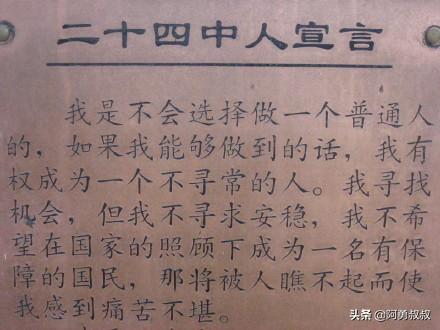 二十四中人宣言
我是不会选择做一个普通人
的，如果我能够做到的话，我有
权成为一个不寻常的人。我寻找
机会，但我不寻求安稳，我不希
望在国家的照顾下成为一名有保
障的国民，那将被人瞧不起而使
我感到痛苦不堪。
头条 @阿勇叔叔